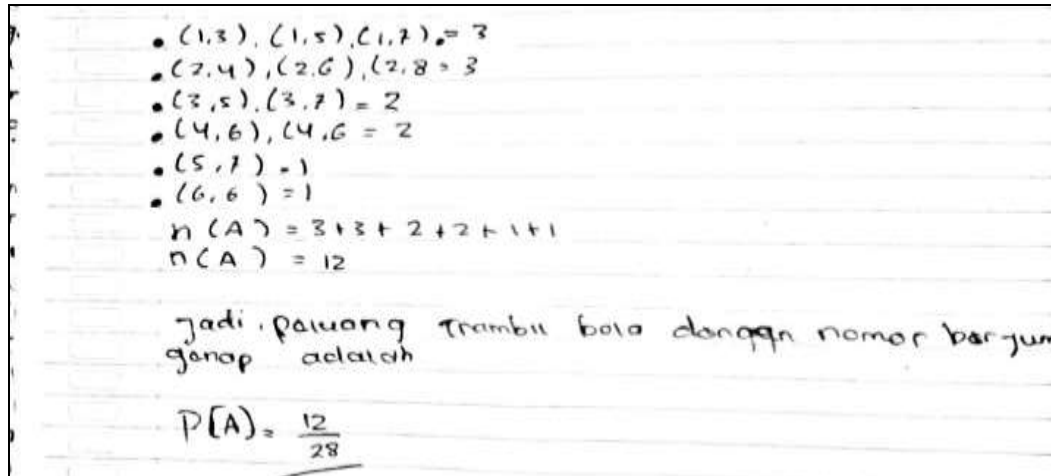 • (1,3), (1,5), (1,7). = 3
• (2,4), (2,6), (2,8 = 3
• (3,5), (3,7) = 2
• (4,6), (4,6 = 2
• (5,7) = 1
• (6,6) = 1
n (A) = 3+3+ 2+2+1+1
n(A) = 12
Jadi, paluang trambil bola dongan nomor barjum
ganap adalah
P[A) = 12/28